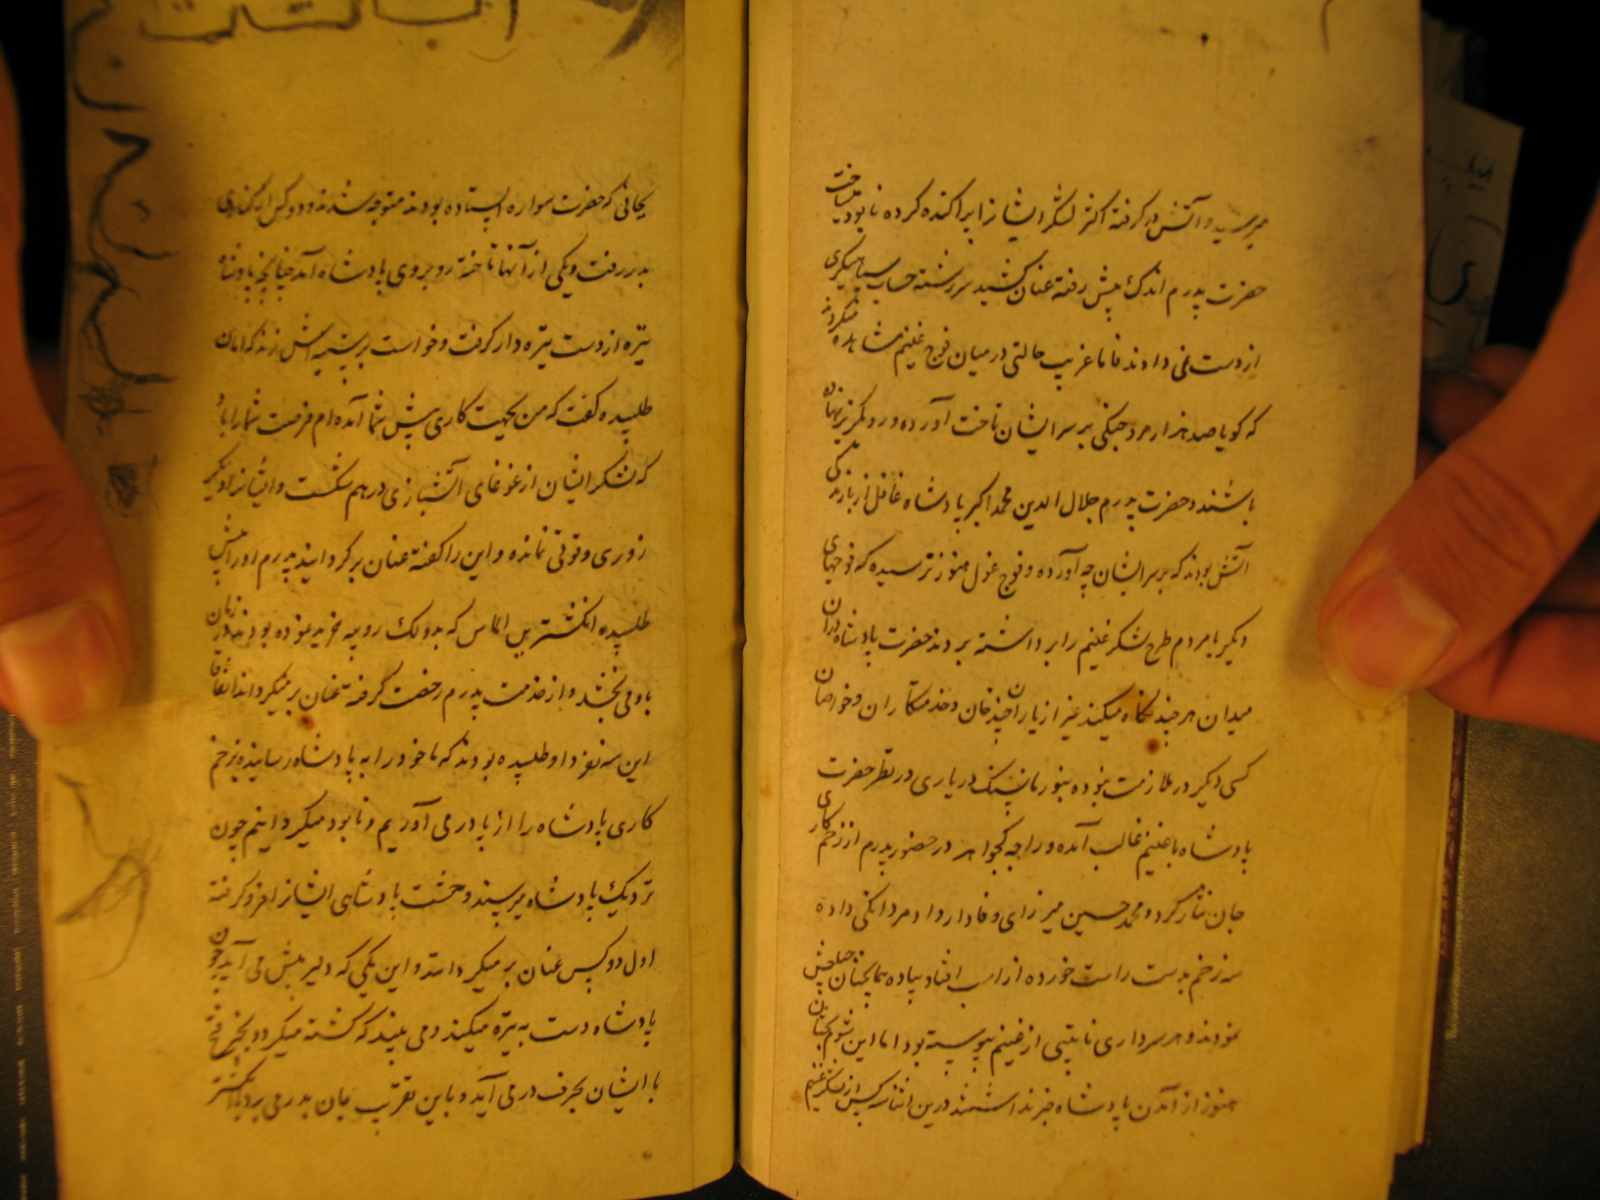 میرسید و آتش در گرفته اکثر لشکر ایشانرا پراکنده کرده نابود میساخت
حضرت پدرم اندک پیش رفته عنان کشید سررشته حساب سپاهیگری
از دست نمی دادند فاما غریب حالتی در میان فوج غنیم مشاهده میکردند
که گویا صد هزار مرد جنگی بر سر ایشان تاخت آورده و رو بگریز نهاده
باشند و حضرت پدرم جلال الدین محمد اکبر پادشاه غافل از بازندگی
آتش بودند که بر سر ایشان چه آورده و فوج غول هنوز نرسیده که فوجهای
دیگر با مردم طرح لشکر غنیم را برداشته بردند حضرت پادشاه دران
میدان هر چند نگاه میکنند غیر از یاران چند خان و خدمتکاران و خواصان
کسی دیگر در ملازمت نبوده بنور مان سنک درباری در نظر حضرت
پادشاه با غنیم غالب آمده و راجه کجواهه در حضور پدرم از زخم کاری
جان نثار کرد و محمد حسین میرزای وفادار داد مردانگی داده
سه زخم بدست راست خورده از اسب افتاد پیاده همچنان
نمودند و هر سرداری نا بتیبی از غنیم پیوسته بود اما این شوم بختان
هنوز از آمدن پادشاه خبر نداشتند درین اثنا سه کس از لشکر غنیم
بجائی که حضرت سواره ایستاده بودند متوجه شدند و دو کس از کناری
بدر رفت و یکی از آنها تاخته رو بروی پادشاه آمد چنانچه پادشاه
نیزه از دست نیزه دار گرفت و خواست بر سینه اش زند که امان
طلبیده گفت که من بجهت کاری پیش شما آمده ام فرصت شما را باد
که لشکر ایشان از غوغای آتشبازی در هم شکست و ایشانرا دیگر
زوری و قوتی نمانده و این را گفته عنان برگردانید پدرم او را پیش
طلبیده انگشترین الماس که بدو لک روپیه خرید نموده بودند در زمان
باو می بخشد و از خدمت پدرم رخصت گرفته عنان بر میگرداند اتفاقا
این سه نفر داوطلبیده بودند که تا خود را به پادشاه رسانیده بزخم
کاری پادشاه را از پا در می آوریم و نابود میگردانیم چون
نزدیک پادشاه میرسند دهشت پادشاهی ایشانرا فرو گرفته
اول دو کس عنان بر میگردانند و این یکی که دلیر پیش می آید چون
پادشاه دست به نیزه میکند و می بیند که کشته میگردد بخبر فتح
با ایشان بحرف در می آید و باین تقریب جان بدر می برد با انگشتر